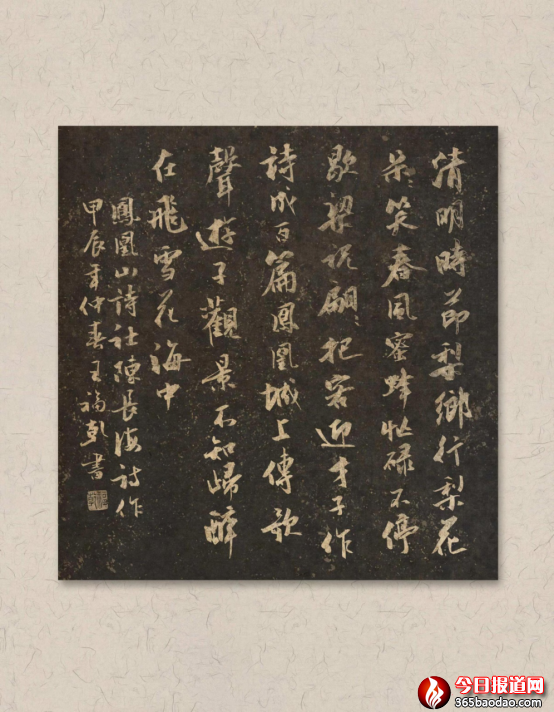 清明時節梨鄉行梨花
朵々笑春風蜜蜂忙碌不停
歇梁祝翩々把客迎才子作
詩成百篇鳳凰城上傳歌
聲遊子觀景不知歸醉
在飛雪花海中
鳳凰山詩社陳長海詩作
甲辰年仲春王福乾書
今日报道网
365baodao.com